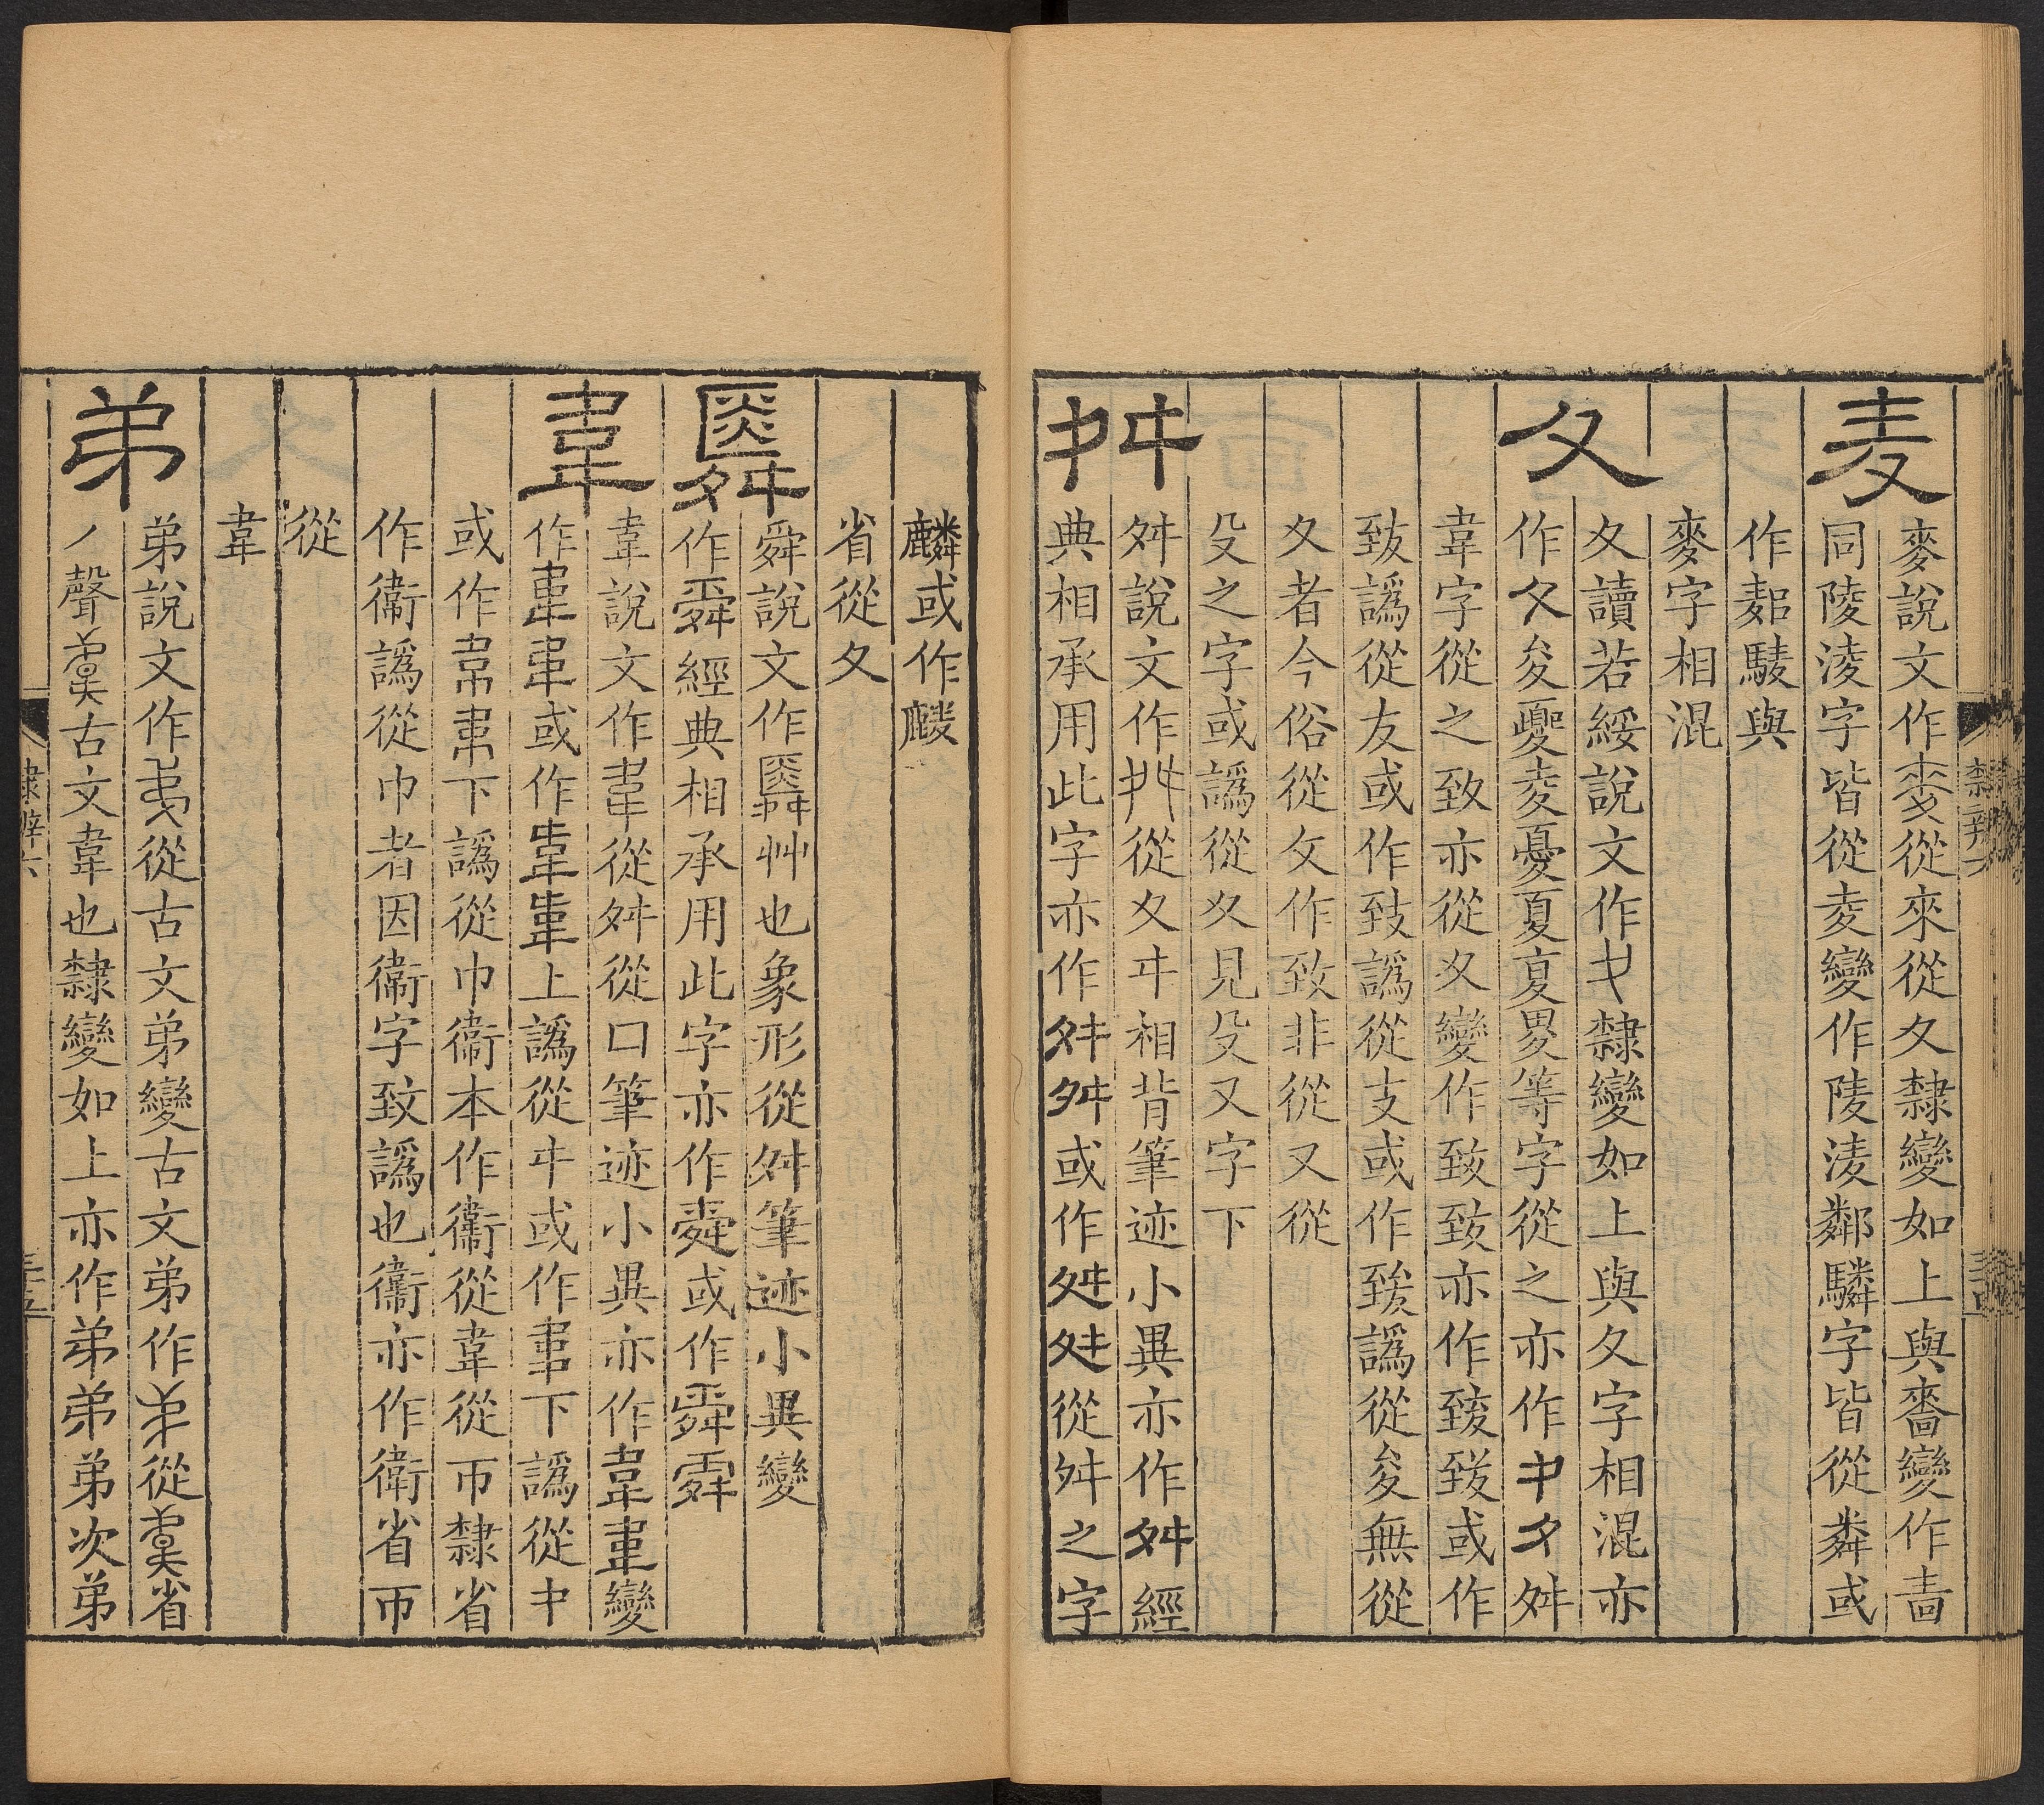 麦
麥說文作麥從來從夊隸變如上與嗇變作啬
同陵淩字皆從夌變作陵淩鄰驎字皆從粦或
作麨騐與
麥字相混
夊
夊讀若綏說文作夊隸變如上與夂字相混亦
作夂夋夔夌憂夏夏畟等字從之亦作㐄夕舛
韋字從之致亦從夊變作致致亦作致致或作
致譌從友或作致譌從支或作致譌從夋無從
夊者今俗從攵作致非從又從
殳之字或譌從夊見殳又字下
舛
舛說文作舛從夊㐄相背筆迹小異亦作舛經
典相承用此字亦作舛舛或作舛舛從舛之字
麟或作麟
省從夂
舜
舜說文作䑞艸也象形從舛筆迹小異變
作舜經典相承用此字亦作舜或作舜舜
韋
韋說文作韋從舛從口筆迹小異亦作韋韋變
作韋韋或作韋韋上譌從㐄或作韋下譌從㐄
或作韋韋下譌從巾衞本作衞從韋從帀隸省
作衞譌從巾者因衞字致譌也衞亦作衛省帀
從
韋
弟
弟說文作弟從古文弟變古文弟作弟從韋省
丿聲韋古文韋也隸變如上亦作弟弟弟次弟
隸辨六
三十五